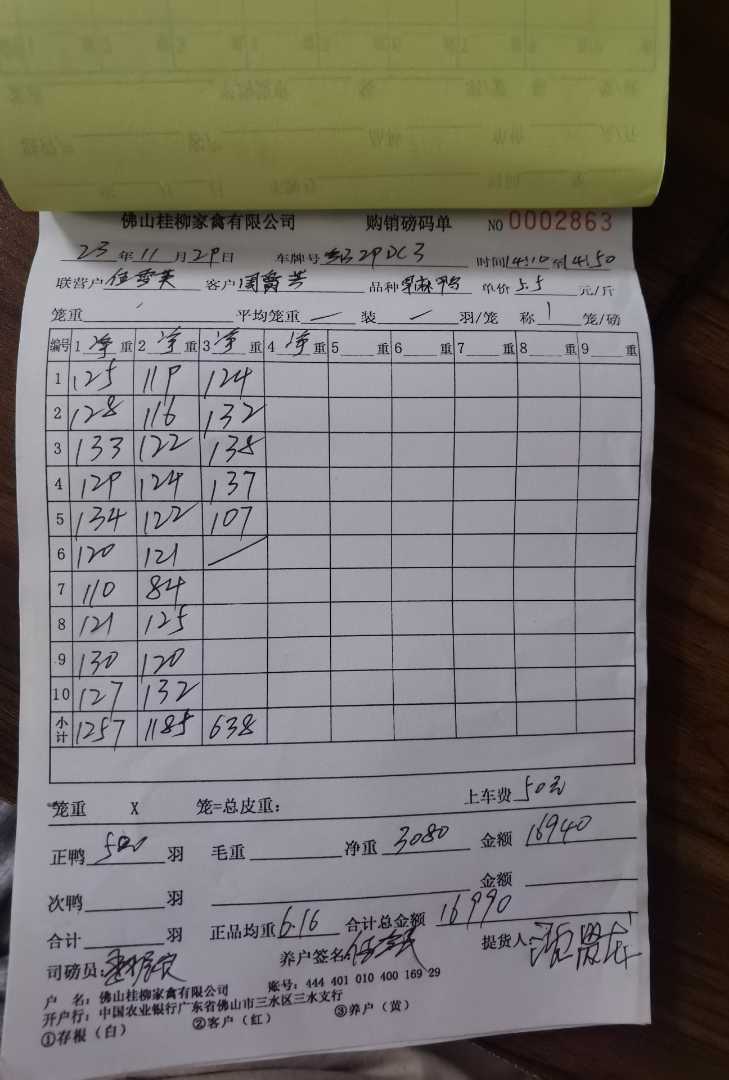 佛山桂柳家禽有限公司 购销磅码单 NO 0002863
23年11月29日 车牌号 29DC3 时间14:10至14:50
联营户 客户 品种 单价5.5元/斤
笼重 平均笼重 — 装 — 羽/笼 称 1 笼/磅
编号 1净重 2净重 3净重 4净重 5重 6重 7重 8重 9重
1 125 119 124
2 128 116 132
3 133 122 138
4 129 124 137
5 134 122 107
6 120 121
7 110 84
8 121 125
9 130 120
10 127 132
小计 1257 1185 638
笼重 X 笼=总皮重: 上车费50元
正鸭500羽 毛重 净重3080 金额16940
次鸭 羽 金额
合计 羽 正品均重6.16 合计总金额16990
司磅员: 养户签名: 提货人:
户 名: 佛山桂柳家禽有限公司 账号: 444 401 010 400 169 29
开户行: 中国农业银行广东省佛山市三水区三水支行
①存根(白) ②客户(红) ③养户(黄)